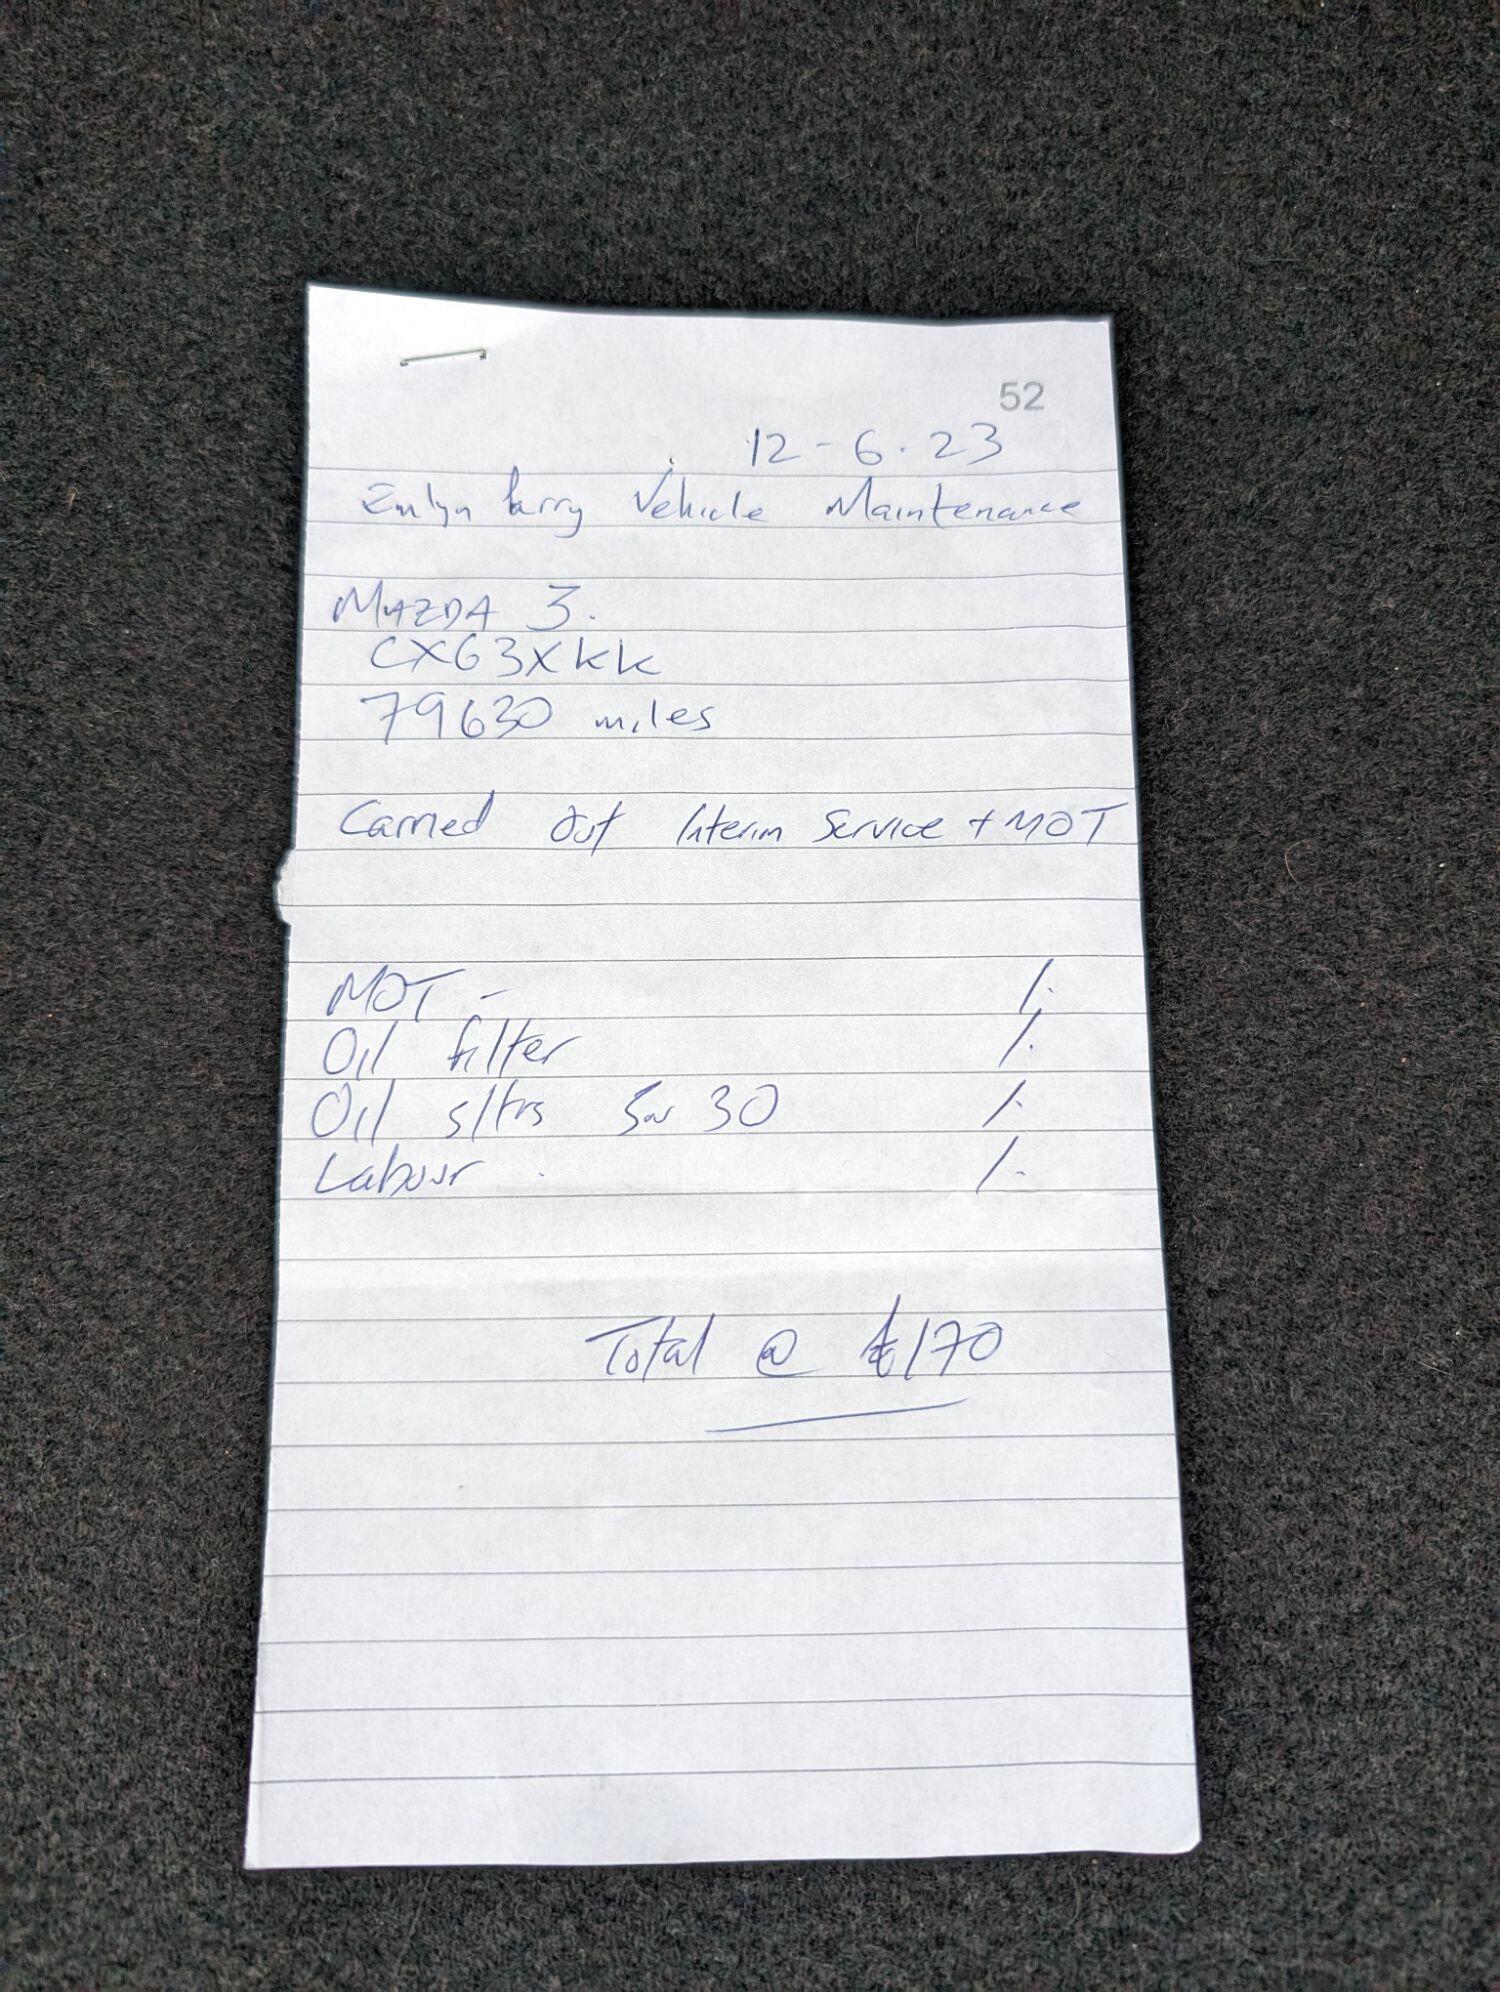 52
12-6.23
Emlyn Parry Vehicle Maintenance
MAZDA 3.
CX63XKK
79630 miles
Carried out Interim Service + MOT
MOT - /.
Oil filter /.
Oil 5ltrs 5w 30 /.
Labour /.
Total @ £170